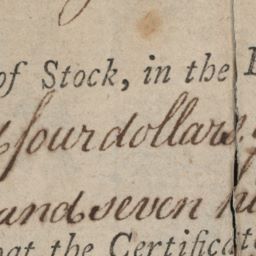 of Stock, in the
four dollars
and seven
at the Certificate